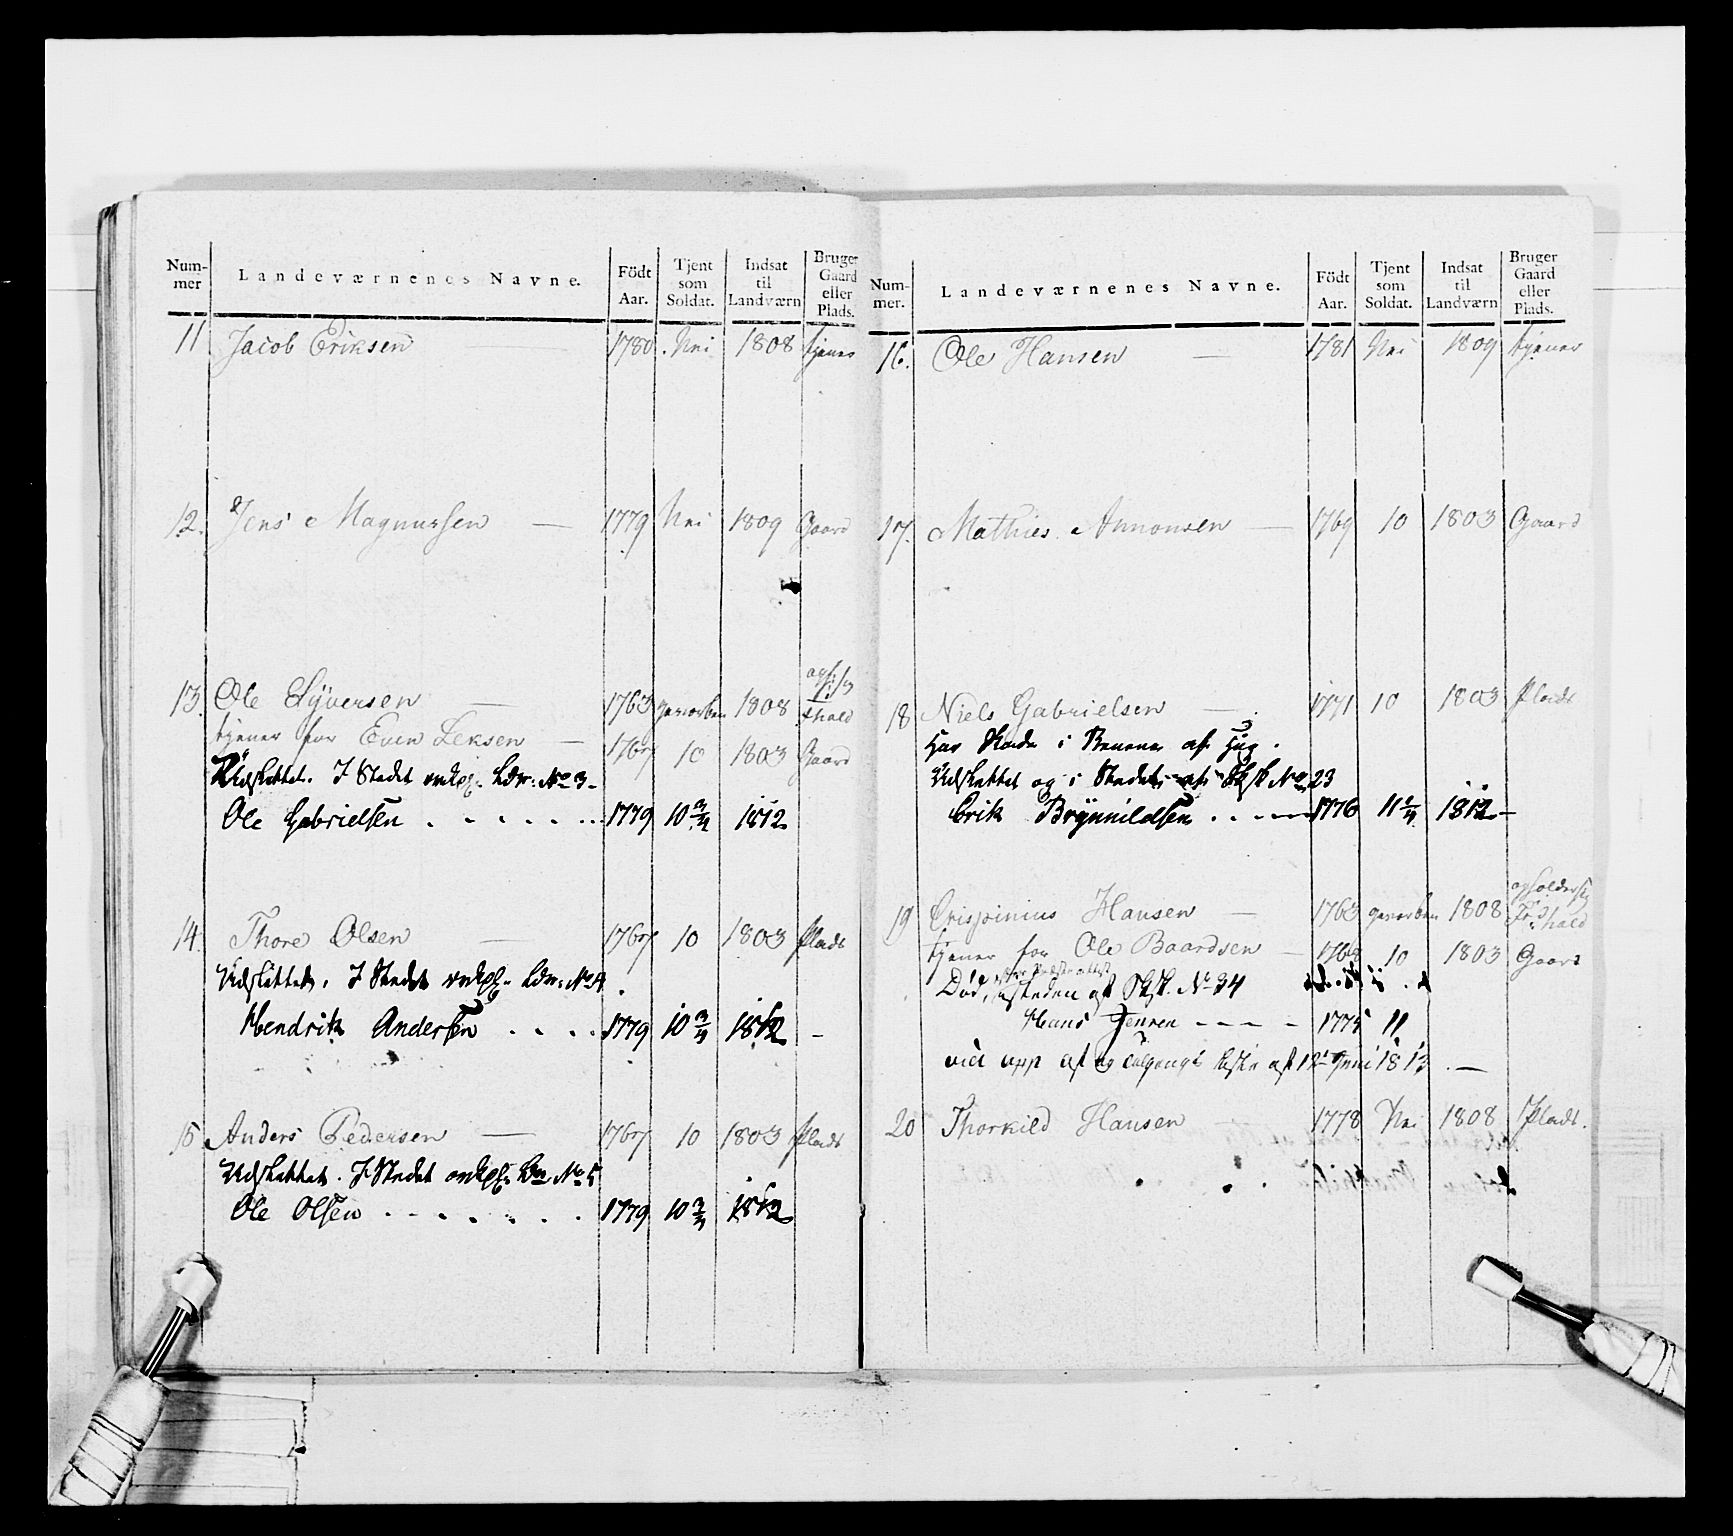 Num-mer | Landeværnenes Navne. | Födt Aar. | Tjent som Soldat. | Indsat til Landværn | Bruger Gaard eller Plads.
11 Jacob Eriksen — 1780 Nei 1808 tjener
12. Jens Magnussen — 1779 Nei 1809 Gaard
13. Ole Syversen — 1763 gevorben 1808
tjener for Even Leksen — 1767 10 1803 Gaard
Udslettet. I Stedet Ldv: No 3
Ole Gabrielsen 1779 10 3/4 1812
14. Thore Olsen — 1767 10 1803 Plads
Udslettet. I Stedet Ldv: No 4
Hendrik Andersen 1779 10 3/4 1812
15 Anders Pedersen — 1767 10 1803 Plads
Udslettet. I Stedet No 5
Ole Olsen 1779 10 3/4 1812
Num-mer. | Landeværnenes Navne. | Födt Aar. | Tjent som Soldat. | Indsat til Landværn | Bruger Gaard eller Plads.
16. Ole Hansen — 1781 Nei 1809 tjener
17. Mathies Amonsen — 1769 10 1803 Gaard
18 Niels Gabrielsen — 1771 10 1803 Plads
har Skade i Benene af
Udslettet og i Stedet No 23
Erik Brynnildsen 1776 1812
19 Crispinius Hansen — 1763 gevorben 1808
tjener for Ole Baardsen — 1769 10 1803 Gaard
Død, No 34
Hans Jensen 1775 11
af 12 Juni 1813
20 Thorkild Hansen 1778 Nei 1808 Plads.